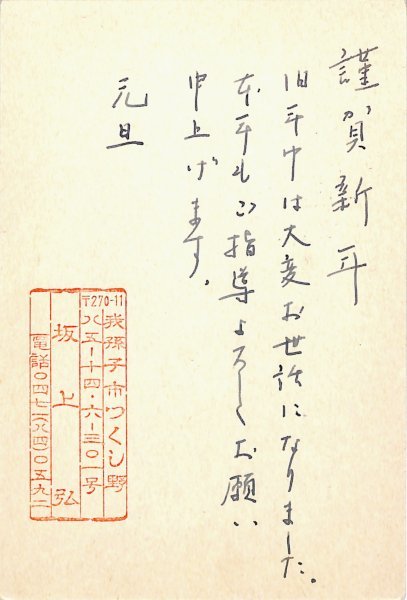 謹賀新年
旧年中は大変お世話になりました。
本年もご指導よろしくお願い
申上げます。
元旦
〒270-11
我孫子市つくし野
八五ー十四・六ー三〇一号
坂上弘
電話〇四七一(八四)〇五九二